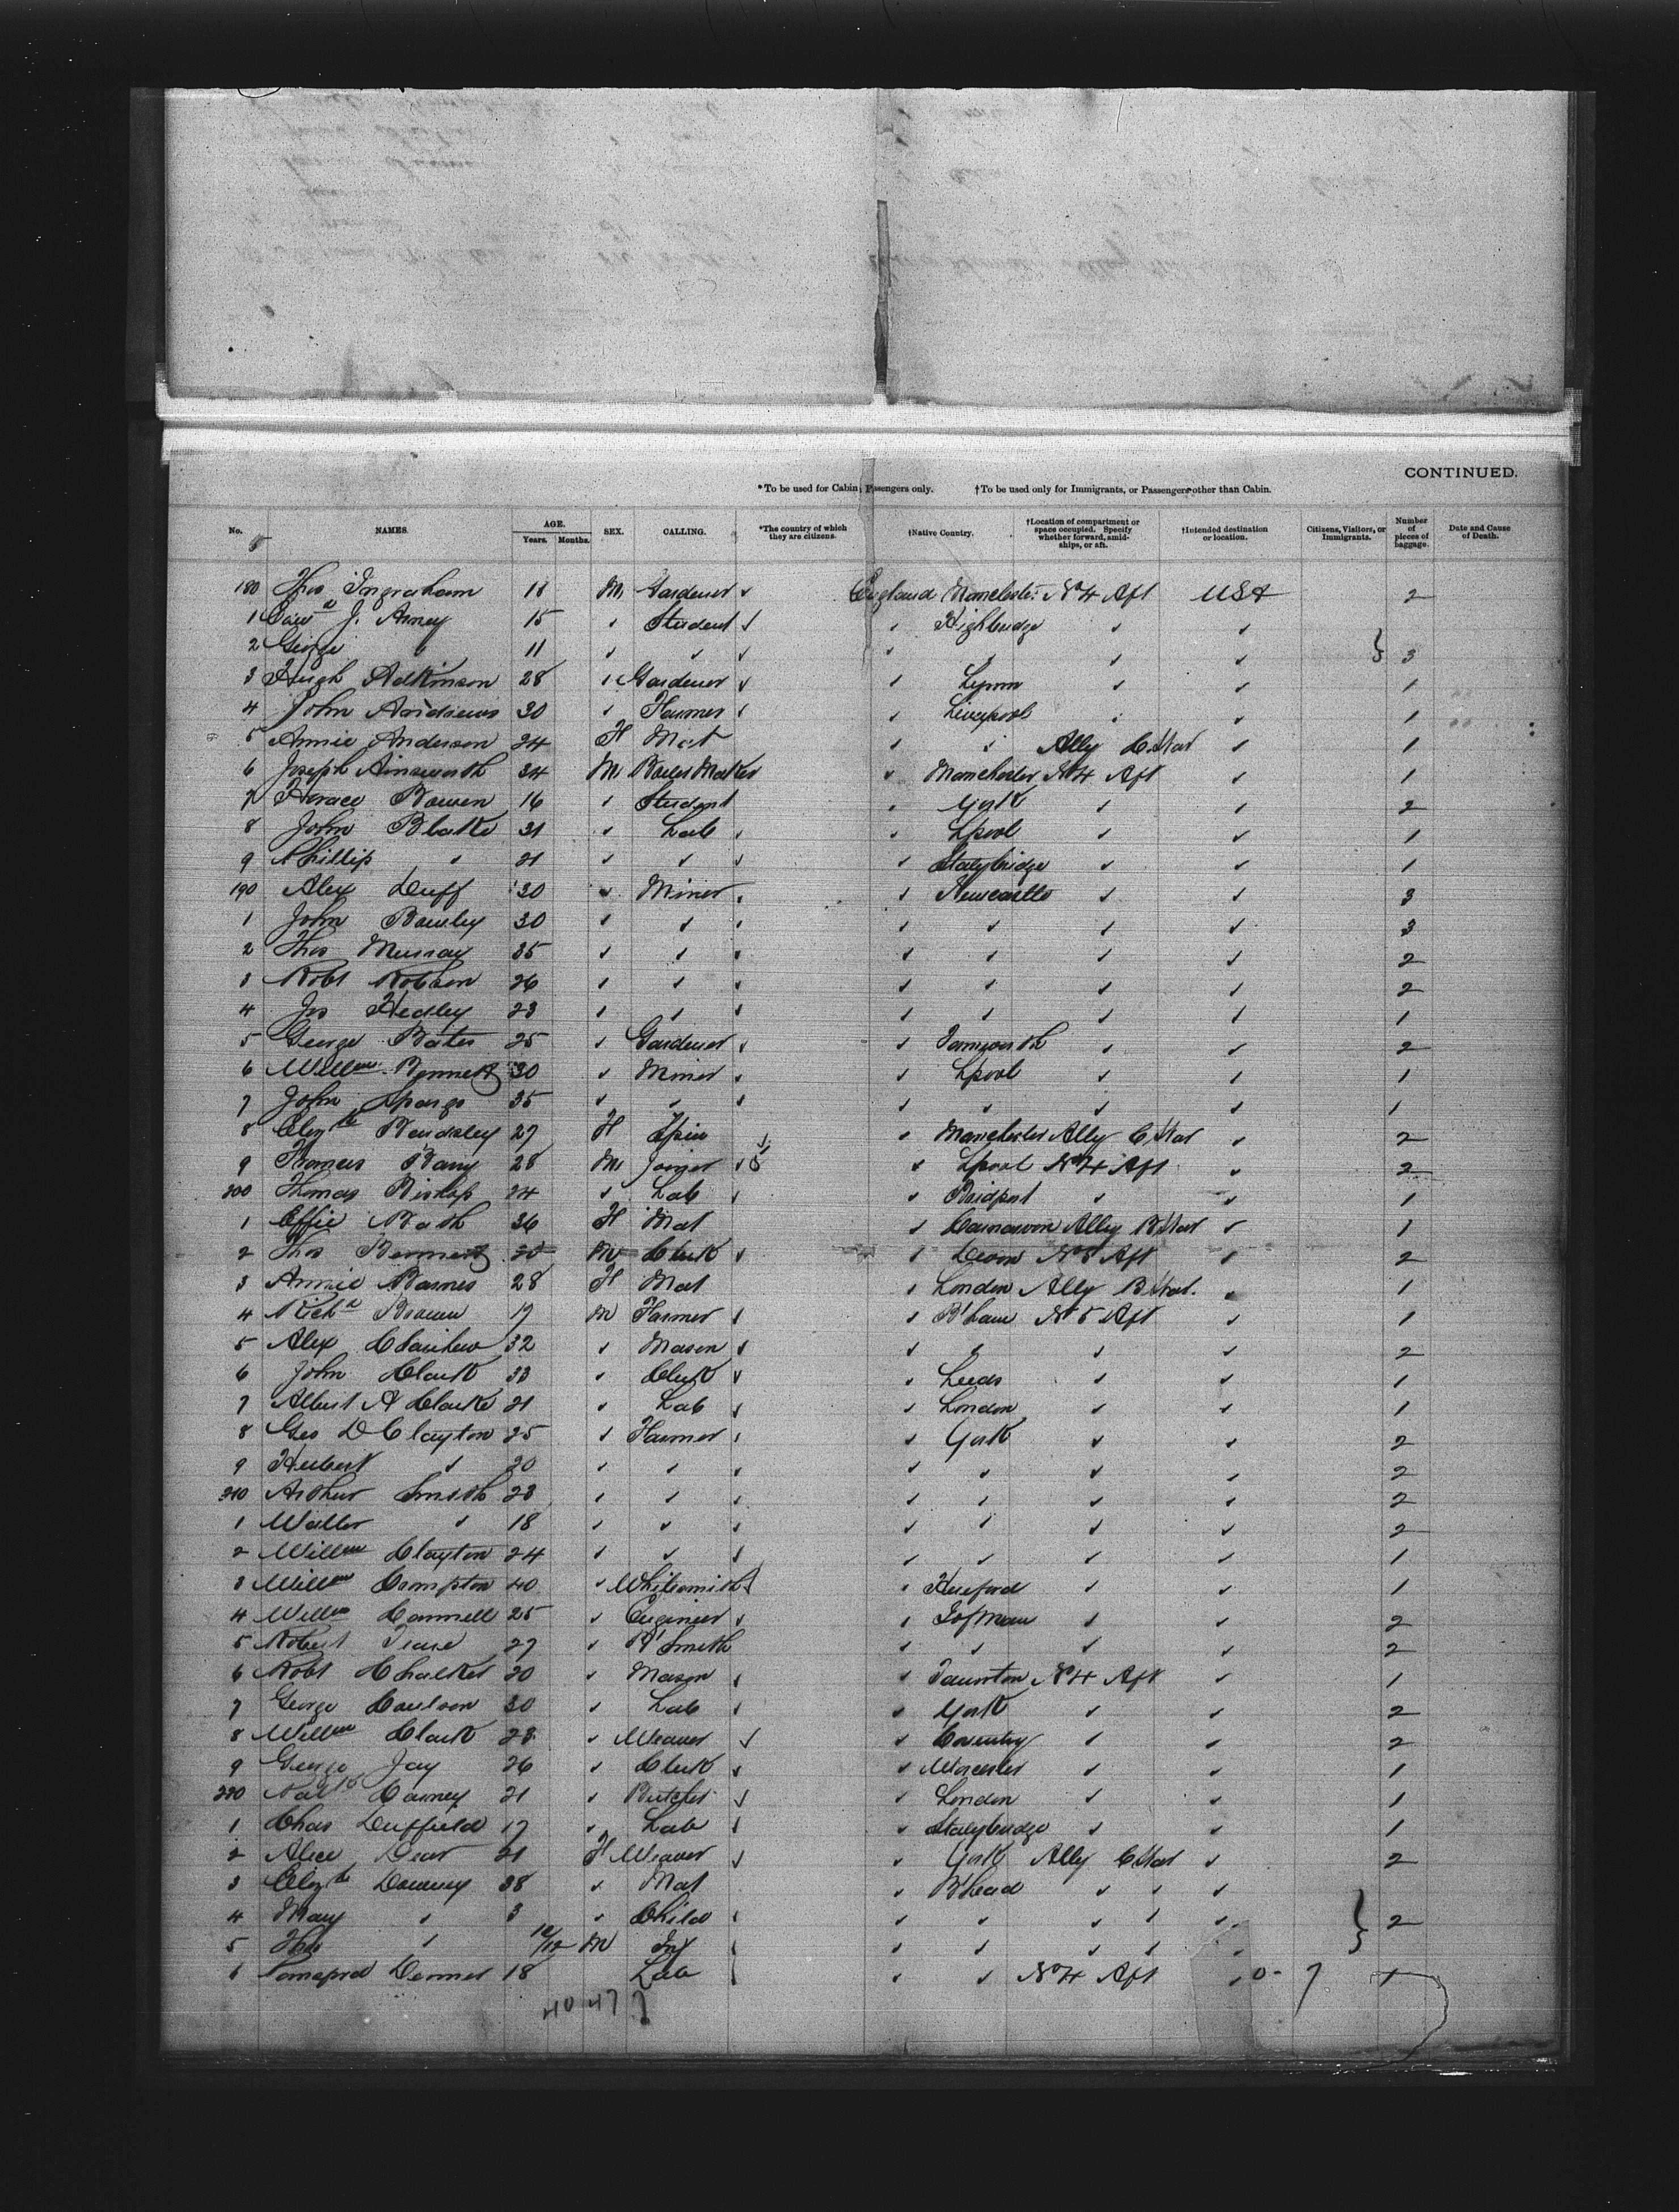 CONTINUED.
*To be used for Cabin Passengers only. †To be used only for Immigrants, or Passengers other than Cabin.
No. NAMES. AGE. Years. Months. SEX. CALLING. *The country of which they are citizens. †Native Country. †Location of compartment or space occupied. Specify whether forward, amidships, or aft. †Intended destination or location. Citizens, Visitors, or Immigrants. Number of pieces of baggage. Date and Cause of Death.
180 Thos Ingraham 18 M Gardener ✓ England Manchester No 4 Aft USA 2
1 Edwd J. Amey 15 ✓ Student ✓ ✓ Highbridge ✓ ✓
2 George ✓ 11 ✓ ✓ ✓ ✓ ✓ ✓ ✓ } 3
3 Hugh Adkinson 28 ✓ Gardener ✓ ✓ Lymm ✓ ✓ 1
4 John Andrews 30 ✓ Farmer ✓ ✓ Liverpool ✓ ✓ 1
5 Annie Anderson 24 F Mat ✓ ✓ Ally C. Star ✓ 1
6 Joseph Ainsworth 34 M Boiler Maker ✓ Manchester No 4 Aft ✓ 1
7 Horace Bowen 16 ✓ Student ✓ York ✓ ✓ 2
8 John Blake 31 ✓ Lab ✓ ✓ Lpool ✓ ✓ 1
9 Phillip ✓ 21 ✓ ✓ ✓ ✓ Stalybridge ✓ ✓ 1
190 Alex Duff 30 ✓ Miner ✓ ✓ Newcastle ✓ ✓ 3
1 John Bewley 30 ✓ ✓ ✓ ✓ ✓ ✓ ✓ 3
2 Thos Murray 35 ✓ ✓ ✓ ✓ ✓ ✓ ✓ 2
3 Robt Robson 26 ✓ ✓ ✓ ✓ ✓ ✓ ✓ 2
4 Jos Hedley 23 ✓ ✓ ✓ ✓ ✓ ✓ ✓ 1
5 George Bates 25 ✓ Gardener ✓ ✓ Tamworth ✓ ✓ 2
6 Willm Bennett 30 ✓ Miner ✓ ✓ Lpool ✓ ✓ 1
7 John Spargo 35 ✓ ✓ ✓ ✓ ✓ ✓ ✓ 1
8 Elizth Beardsley 27 F Spin ✓ ✓ Manchester Ally C. Star ✓ 2
9 Thomas Barry 28 M Joiner ✓ ✓ Lpool No 4 Aft ✓ 2
200 Thomas Bishop 24 ✓ Lab ✓ ✓ Bridport ✓ ✓ 1
1 Effie Bath 36 F Mat ✓ Carnarvon Ally B. Star ✓ 1
2 Thos Bennett 20 M Clerk ✓ ✓ Devon No 5 Aft ✓ 2
3 Annie Barnes 28 F Mat ✓ London Ally B. Star. ✓ 1
4 Richd Brown 19 M Farmer ✓ ✓ B'ham No 5 Aft ✓ 1
5 Alex 32 ✓ Mason ✓ ✓ ✓ ✓ ✓ 2
6 John Clark 33 ✓ Clerk ✓ ✓ Leeds ✓ ✓ 1
7 Albert A Clarke 21 ✓ Lab ✓ ✓ London ✓ ✓ 1
8 Geo D Clayton 25 ✓ Farmer ✓ ✓ York ✓ ✓ 2
9 Herbert ✓ 20 ✓ ✓ ✓ ✓ ✓ ✓ ✓ 2
210 Arthur Smith 23 ✓ ✓ ✓ ✓ ✓ ✓ ✓ 2
1 Walter ✓ 18 ✓ ✓ ✓ ✓ ✓ ✓ ✓ 2
2 Willm Clayton 24 ✓ ✓ ✓ ✓ ✓ ✓ ✓ 1
3 Willm Crompton 40 ✓ Whitesmith ✓ ✓ Hereford ✓ ✓ 1
4 Willm Cannell 25 ✓ Engineer ✓ ✓ I of Man ✓ ✓ 2
5 Robert Teare 27 ✓ B'Smith ✓ ✓ ✓ ✓ 2
6 Robt Chalker 20 ✓ Mason ✓ ✓ Taunton No 4 Aft ✓ 1
7 George Coulson 30 ✓ Lab ✓ ✓ York ✓ ✓ 2
8 Willm Clark 28 ✓ Weaver ✓ ✓ Coventry ✓ ✓ 2
9 George Jay 26 ✓ Clerk ✓ ✓ Worcester ✓ ✓ 1
220 Carney 21 ✓ Butcher ✓ ✓ London ✓ ✓ 1
1 Chas Duffield 17 ✓ Lab ✓ ✓ Stalybridge ✓ ✓ 1
2 Alice Dear 21 F Weaver ✓ ✓ York Ally C. Star ✓ 2
3 Elizth Downey 38 ✓ Mat ✓ B'head ✓ ✓ ✓
4 Mary ✓ 3 ✓ Child ✓ ✓ ✓ ✓ ✓ ✓ } 2
5 Thos ✓ 10/12 M Inf ✓ ✓ ✓ ✓ ✓ ✓
6 18 Lab ✓ ✓ ✓ No 4 Aft ✓ 0- 7 1
40 47 7